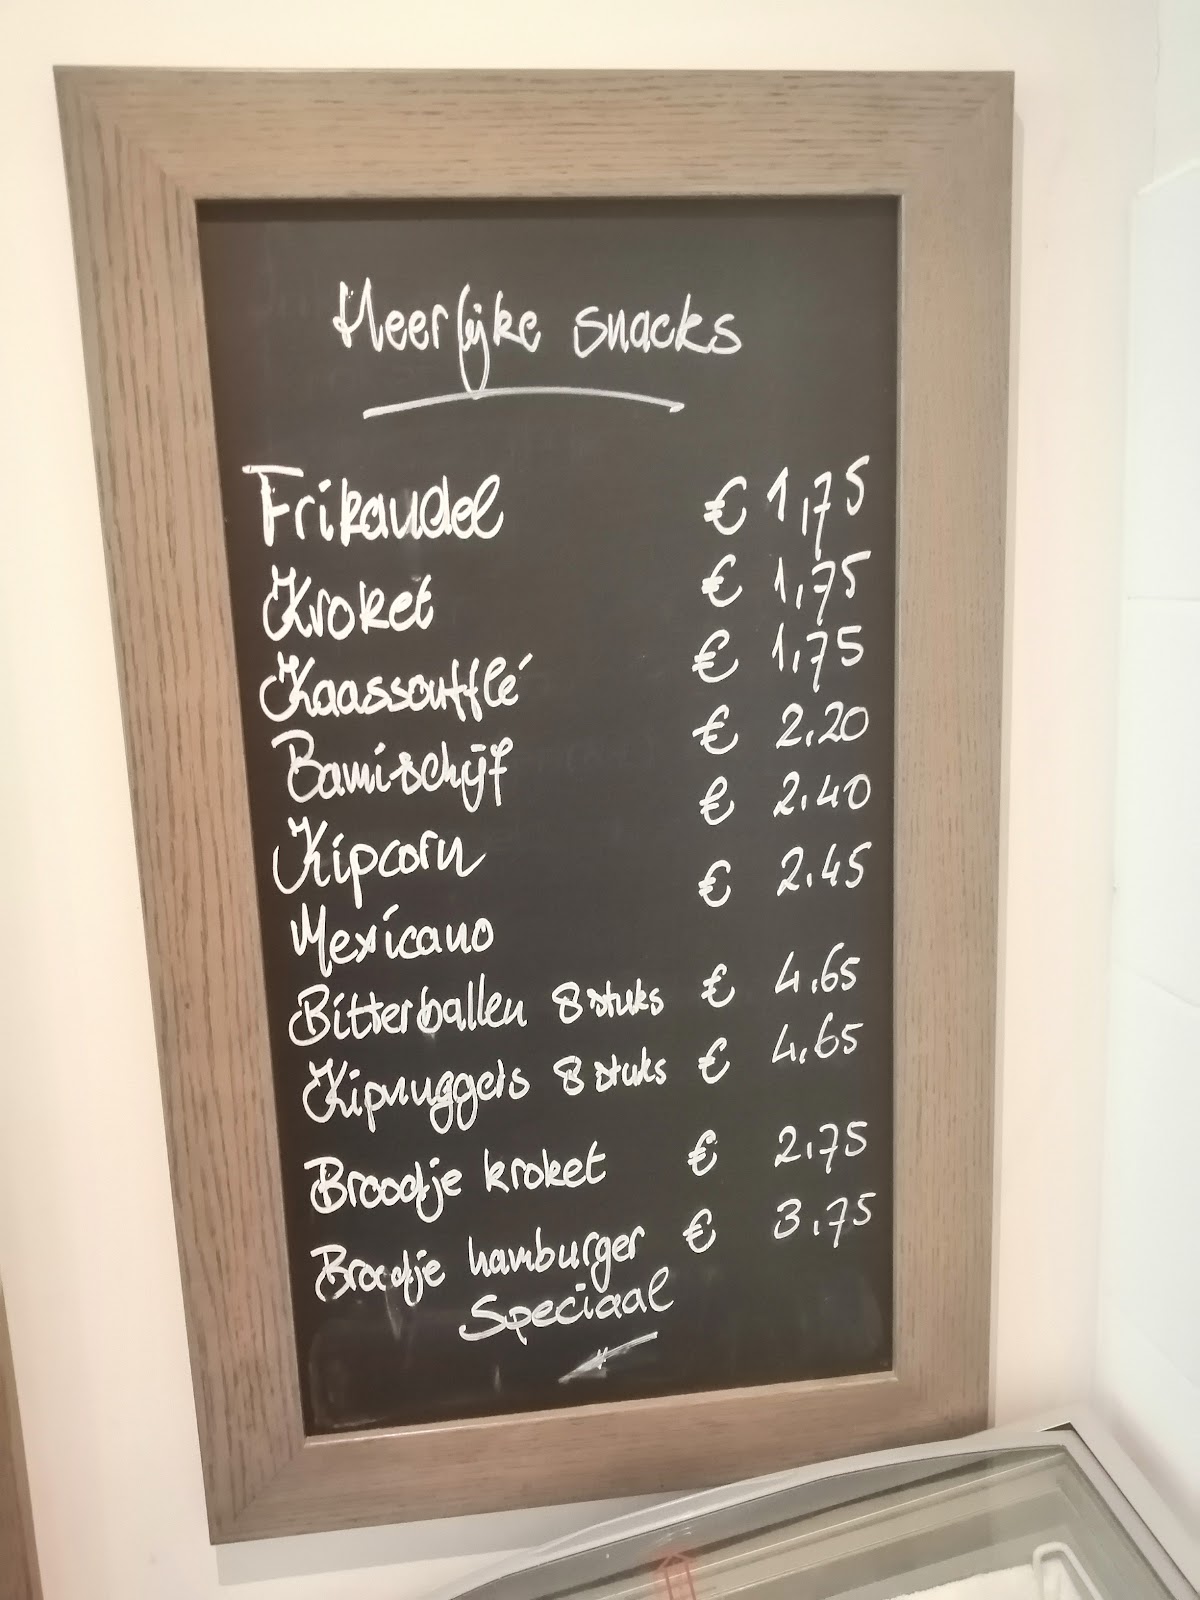 Heerlijke snacks
Frikandel € 1,75
Kroket € 1,75
Kaassoufflé € 1,75
Bamischijf € 2,20
Kipcorn € 2,40
Mexicano € 2,45
Bitterballen 8 stuks € 4,65
Kipnuggets 8 stuks € 4,65
Broodje kroket € 2,75
Broodje hamburger € 3,75
Speciaal